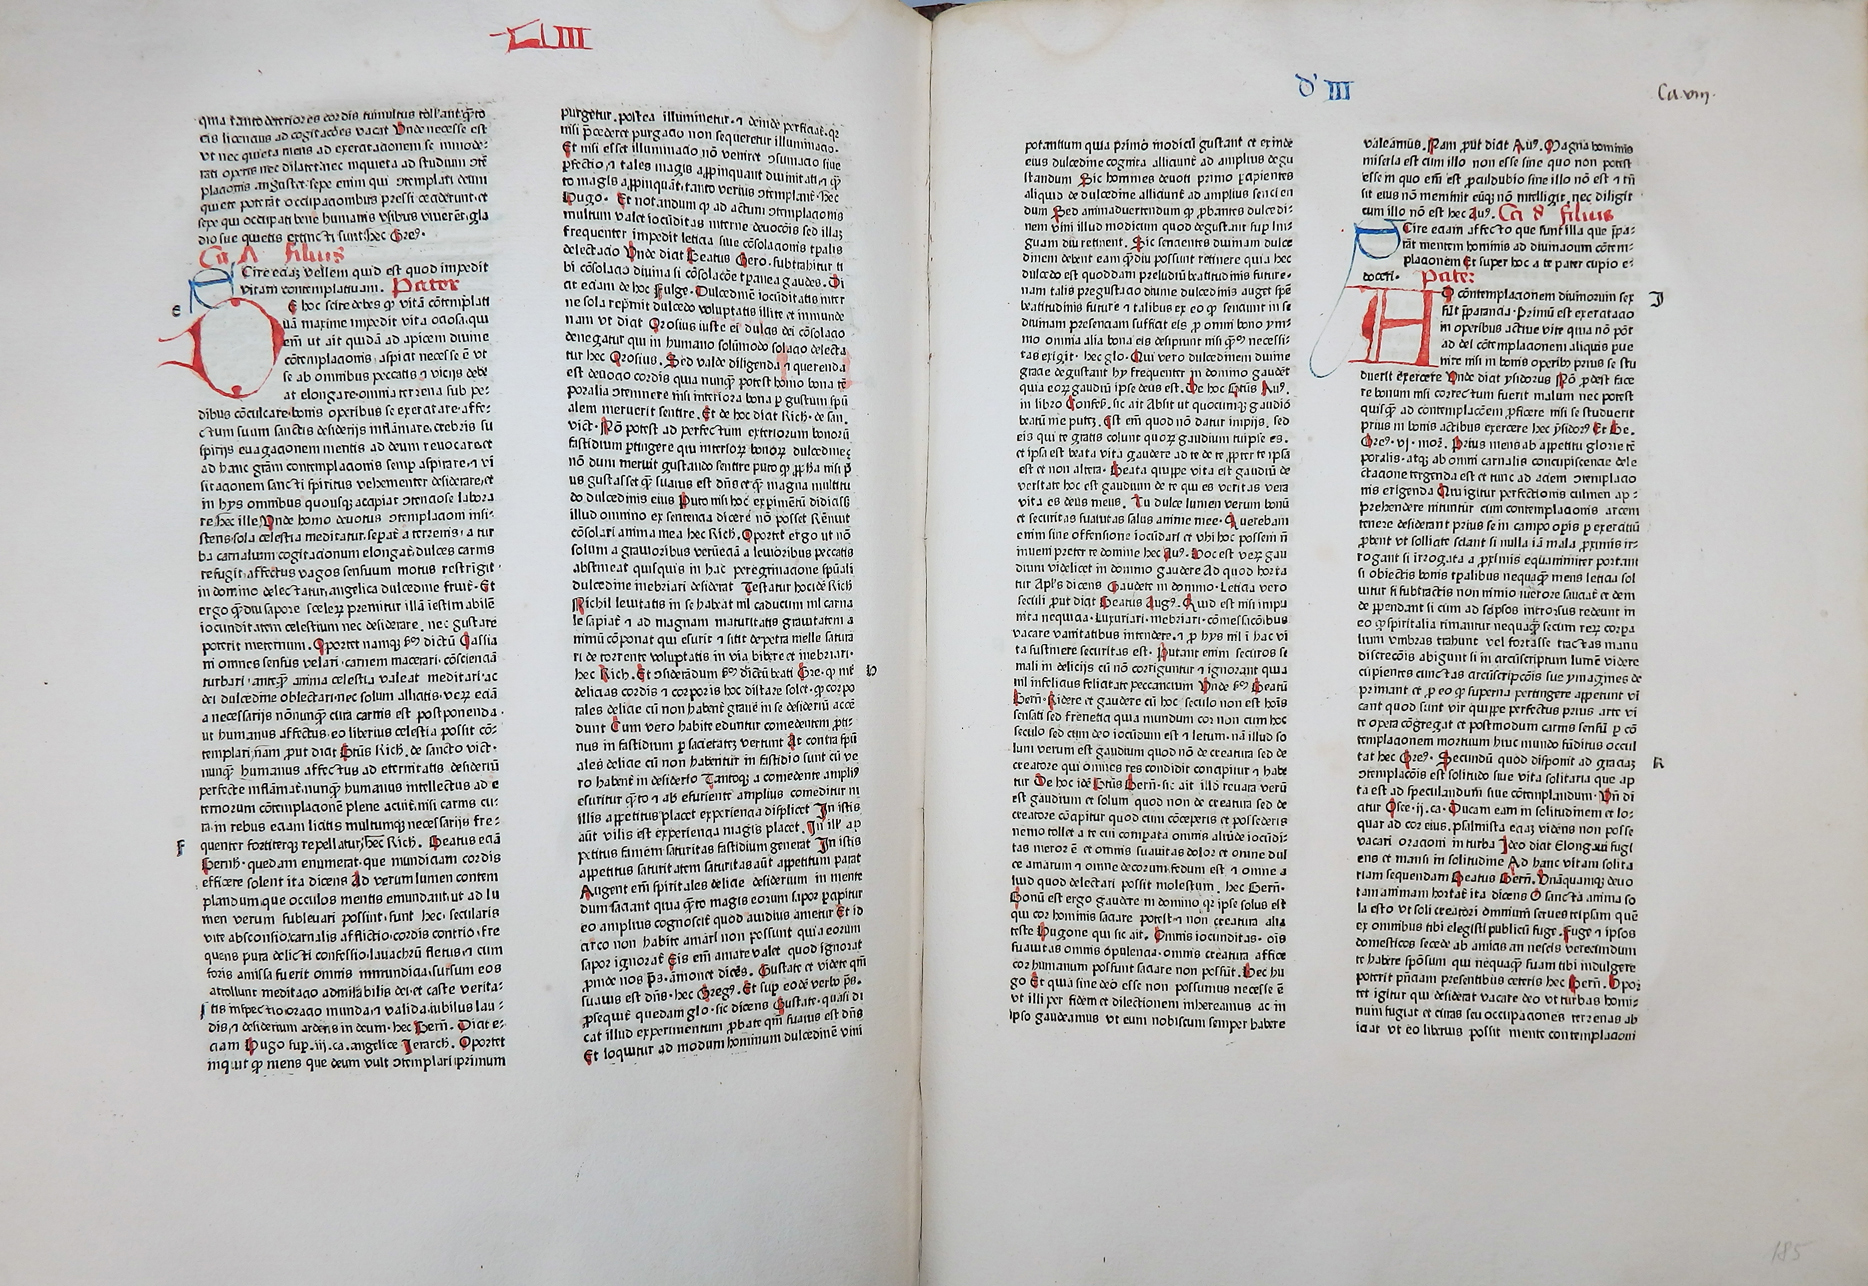 L III
quia tanto deteriores cordis tumultus toll'ant· q̄ȝto
eis licentius ad cogitacōes vacat Unde necesse est
vt nec quieta mens ad exercitacionem se inmode-
rati operis nec dilatet nec inquieta ad studium ɔtē
placionis angustet· sepe enim qui ɔtemplati deum
quiete poterāt occupacionibus pressi ceciderunt· et
sepe qui occupati bene humanis vsibus viuerēt· gla
dio sue quietis extincti sunt· hec Gre⁹·
Ca A filius
Cire eciaȝ vellem quid est quod impedit
vitam contemplatiuam. Pater
e
E hoc scire debes qꝫ vitā cōtemplati
uā maxime impedit vita ociosa· qui
em̄ ut ait quidā ad apicem diuine
cōtemplacionis· aspirat necesse ē vt
se ab omnibus peccatis ⁊ vicijs debe
at elongare· omnia terrena sub pe-
dibus cōculcare· bonis operibus se exercitare· affe-
ctum suum sanctis desiderijs inflāmare· crebris su
spirijs euagacionem mentis ad deum reuocare· et
ad hanc grām contemplacionis semp aspirare· ⁊ vi
sitacionem sancti spiritus vehementer desiderare· et
in hys omnibus quousqꝫ accipiat ɔtencione labora
re· hec ille Unde homo deuotus ɔtemplacioni insi-
stens· sola celestia meditatur· sepāt̄ a terrenis· a tur
ba carnalium cogitacionum elongat̄· dulces carnis
refugit affectus vagos sensuum motus restrigit·
in domino delectatur, angelica dulcedine fruit̄· Et
ergo q̄ȝdiu sapore sceleꝝ premitur illā īestimabilē
iocunditatem celestium nec desiderare, nec gustare
poterit meternum. Oportet namqꝫ scd'm dictū Cassia
ni omnes sensus velari· carnem macerari· cōsciencia
turbari· anteqꝫ anima celestia valeat meditari· ac
dei dulcedine oblectari· nec solum allicitis· veꝝ eciā
a necessarijs nōnunqꝫ cura carnis est postponenda·
ut humanus affectus· eo liberius celestia possit cō-
templari nam prout dicit Btūs Rich. de sancto vict·
nunqꝫ humanus affectus ad eternitatis desideriū
perfecte inflāmat̄· nunqꝫ humanus intellectus ad e
ternorum cōtemplacionē plene acuit̄· nisi carnis cu-
ra· in rebus eciam licitis multumqꝫ necessarijs fre-
f
quenter fortiterqꝫ repellatur· hec Rich. Beatus eciā
Bernh· quedam enumerat· que mundiciam cordis
efficere solent ita dicens Ad verum lumen contem
plandum· que occulos mentis emundant· ut ad lu
men verum subleuari possint· sunt hec· secularis
vite abscōsio· carnalis afflictio· cordis contricio· fre
quens pura delicti confessio· lauachrū fletus· ⁊ cum
foris amissa fuerit omnis immundicia· sursum eos
attollunt meditacio admirabilis dei· et caste verita-
tis inspectio· oracio munda ⁊ valida· iubilus lau-
dis, ⁊ desiderium ardens in deum· hec Bern̄· Dicit e-
ciam Hugo sup· iij· ca· angelice Jerarch. Oportet
inquit qꝫ mens que deum vult ɔtemplari primum
purgetur· postea illuminetur· ⁊ deinde perficiat̄· qr
nisi p̄cederet purgacio non sequeretur illuminacio·
Et nisi esset illuminacio nō veniret ɔsumacio siue
ꝑfectio, ⁊ tales magis appinquant diuinitati ⁊ qꝫ
to magis appinquāt· tanto verius ɔtemplant̄· hec
Hugo· Et notandum qꝫ ad actum ɔtemplacionis
multum valet iocūditas interne deuocōis sed illaȝ
frequenter impedit leticia siue cōsolacionis tꝑalis
delectacio Unde dicit Beatus Gero· subtrahitur ti
bi cōsolacio diuina si cōsolacōe tꝑanea gaudes. Di
cit eciam de hoc Fulge· Dulcedinē iocūditatis inter
ne sola reprimit dulcedo voluptatis illicite et inmunde
nam vt dicit Orosius iuste ei dulcis dei cōsolacio
denegatur qui in humano solūmodo solacio delecta
tur hec Orosius. Sed valde diligenda ⁊ querenda
est deuocio cordis quia nunqꝫ potest homo bona tē
poralia ɔtemnere nisi interiora bona ꝑ gustum spū
alem meruerit sentire. Et de hoc dicit Rich· de san.
vict· Nō potest ad perfectum exteriorum bonorū
fastidium ꝑtingere qui interioꝝ bonoꝝ dulcedinē
nō dum meruit gustando sentire puto qꝫ ꝓpha nisi p̄
us gustasset qꝫ suauis est dn̄s et qꝫ magna multitu
do dulcedinis eius Puto nisi hoc expimētū didicissꝫ
illud omnino ex sentencia dicere nō posset Rēnuit
cōsolari anima mea hec Rich. Oportet ergo ut nō
solum a grauioribus verūeciā a leuioribus peccatis
abstineat quisquis in hac peregrinacione spūali
dulcedine inebriari desiderat Testatur hoc idē Rich
Nichil leuitatis in se habeat nil caducum nil carna
le sapiat ⁊ ad magnam maturitatis grauitatem a
nimū cōponat qui esurit ⁊ sitit de petra melle satura
ri de torrente voluptatis in via bibere et inebriari·
hec Rich. Et ɔsiderādum scd'm dictū beati Gre· qꝫ int̄
h
delicias cordis ⁊ corporis hoc distare solet· qꝫ corpo
rales delicie cū non habent̄ graue in se desideriū accē
dunt Cum vero habite eduntur comedentem ꝓti-
nus in fastidium ꝑ societateȝ vertunt At contra spū
ales delicie cū non habentur in fastidio sunt cū ve
ro habent̄ in desiderio Tantoqꝫ a comedente ampli⁹
esuritur qꝫto ⁊ ab esuriente amplius comeditur In
illis appetitus placet experiencia displicet In istis
aūt vilis est experiencia magis placet. In ill' ap
petitus famem saturitas fastidium generat In istis
appetitus saturitatem saturitas aūt appetitum parat
Augent em̄ spiritales delicie desiderium in mente
dum saciant quia qꝫto magis eorum sapor ꝑcipitur
eo amplius cognoscit̄ quod auidius ametur Et id
circo non habite amari non possunt quia eorum
sapor ignorat̄ Eis em̄ amare valet quod ignorat
ꝓinde nos ps̄· āmonet dicēs. Gustate et videte qm̄
suauis est dn̄s· hec Greg⁹. Et sup eodē verbo ps̄.
ꝓsequit̄ quedam glo· sic dicens Gustate· quasi di
cat illud experimentum ꝓbate qm̄ suauis est dn̄s
Et loquitur ad modum hominum dulcedinē vini
d' III
Ca. viij.
potantium quia primo modicū gustant et exinde
eius dulcedine cognita alliciunt̄ ad amplius degu
standum Sic homines deuoti primo ꝑcipientes
aliquid de dulcedine alliciunt̄ ad amplius sencien
dum Sed animaduertendum qꝫ ꝓbantes dulcedi-
nem vini illud modicum quod degustant sup lin-
guam diu retinent. Sic sencientes diuinam dulce
dinem debent eam qꝫdiu possunt retinere quia hec
dulcedo est quoddam preludiū beatitudinis future·
nam talis pregustacio diuine dulcedinis auget spē
beatitudinis future ⁊ talibus ex eo qꝫ senciunt in se
diuinam presenciam sufficit eis ꝓ omni bono ym-
mo omnia alia bona eis desipiunt nisi qꝫs necessi-
tas exigit· hec glo· Qui vero dulcedinem diuine
gracie degustant hy frequenter in domino gaudēt
quia eoꝝ gaudiū ipse deus est. De hoc Btūs Au⁹.
in libro Confess. sic ait Absit ut quocumqꝫ gaudio
beatū me putē, Est em̄ quod nō datur impijs, sed
eis qui te gratis colunt quoꝝ gaudium tuipse es.
et ipsa est beata vita gaudere ad te de te ꝓpter te ipsa
est et non altera. Beata quippe vita est gaudiū de
veritate hoc est gaudium de te qui es veritas vera
vita es deus meus. Tu dulce lumen verum bonū
et securitas suauitas salus anime mee. Querebam
enim sine offensione iocūdari et vbi hoc possem n̄
inueni preter te domine hec Au⁹. Hoc est veꝝ gau
dium videlicet in domino gaudere Ad quod horta
tur Apl's dicens Gaudete in domino· Leticia vero
seculi ꝓut dicit Beatus Aug⁹. Quid est nisi impu
nita nequicia· Luxuriari· inebriari· cōmessacōibus
vacare vanitatibus intendere, ⁊ ꝓ hys nil ī hac vi
ta sustinere securitas est. Putant enim securos se
mali in delicijs cū nō corriguntur ⁊ ignorant quia
nil infelicius felicitate peccancium Unde scd'm Beatū
Bern̄· Ridere et gaudere cū hoc seculo non est hoīs
sensati sed frenetici quia mundum cor non cum hoc
seculo sed cum deo iocūdum est ⁊ letum· nā illud so
lum verum est gaudium quod nō de creatura sed de
creatore qui omnes res condidit concipitur ⁊ habe
tur De hoc idē Btūs Bern̄· sic ait illd reuara verū
est gaudium et solum quod non de creatura sed de
creatore cōcipitur quod cum cōceperis et possederis
nemo tollet a te cui compata omnis aliūde iocūdi-
tas meror ē et omnis suauitas dolor et omne dul
ce amarum ⁊ omne decorum fedum est ⁊ omne a
liud quod delectari possit molestum . hec Bern̄·
Bonū est ergo gaudere in domino qr ipse solus est
qui cor hominis saciare potest ⁊ non creatura alia
teste Hugone qui sic ait. Omnis iocunditas· ois
suauitas omnis opulencia· omnis creatura affice
cor humanum possunt saciare non possūt. Hec hu
go Et quia sine deo esse non possumus necesse ē
vt illi per fidem et dilectionem inhereamus ac in
ipso gaudeamus vt eum nobiscum semper habere
valeamus. Nam ꝓut dicit Au⁹. Magna hominis
miseria est cum illo non esse sine quo non potest
esse in quo em̄ est ꝓculdubio sine illo nō est ⁊ tn̄
sit eius nō meminit eūqꝫ nō intelligit, nec diligit
cum illo nō est hec Au⁹. Ca 8 filius
Cire eciam affecto que sunt illa que p̄pa-
rāt mentem hominis ad diuinaoum cōtem-
placionem Et super hoc a te pater cupio e-
doceri· Pater
D contemplacionem diuinorum sex
J
sūt p̄paranda· Primū est exercitacio
in operibus actiue vite quia nō pōt
ad dei cōtemplacionem aliquis pue
nire nisi in bonis operibꝫ prius se stu
duerit exercere Unde dicit ysidorus Nō ꝓdest face
re bonum nisi correctum fuerit malum nec potest
quisqꝫ ad contemplacōem ꝓficere nisi se studuerit
prius in bonis actibus exercere hec ysidor⁹ Et be.
Gre⁹· vj· mor. Prius mens ab appetitu glorie tē
poralis· atqꝫ ab omni carnalis concupiscencie dele
ctacione tergenda est et tunc ad aciem ɔtemplacio
nis erigenda Qui igitur perfectionis culmen ap-
prehendere nituntur cum contemplacionis arcem
tenere desiderant prius se in campo opis ꝑ exercitiū
ꝓbent vt sollicite sciant si nulla iā mala ꝓximis ir-
rogant si irrogata a ꝓximis equanimiter portant
si obiectis bonis tꝑalibus nequaqꝫ mens leticia sol
uitur si subtractis non nimio merore sauciat̄ et dem
de ꝑpendant si cum ad seipsos introrsus redeunt in
eo qꝫ spiritalia rimantur nequaqꝫ secum reꝝ corpa
lium vmbras trahunt vel fortasse tractas manu
discrecōis abigunt si in circūscriptum lumē videre
cupientes cunctas circūscripcōis sue ymagines de
primant et ꝓ eo qꝫ superna pertingere appetunt vi
cant quod sunt vir quippe perfectus prius arte vi
te opera cōgregat et postmodum carnis sensū ꝑ cō
templacionem mortuum huic mundo fūditus occul
tat hec Gre⁹. Secundū quod disponit ad graciaȝ
k
ɔtemplacōis est solitudo siue vita solitaria que ap
ta est ad speculandum siue cōtemplandum· Vn̄ di
citur Osee· ij· ca· Ducam eam in solitudinem et lo-
quar ad cor eius. psalmista eciaȝ videns non posse
vacari oracioni in turba Ideo dicit Elongaui fugi
ens et mansi in solitudine Ad hanc vitam solita
riam sequendam Beatus Bern̄. Vnāquamqꝫ deuo
tam animam hortat̄ ita dicens O sancta anima so
la esto vt soli creatori omnium serues teipsam quē
ex omnibus tibi elegisti publicū fuge· Fuge ⁊ ipsos
domesticos secede ab amicis an nescis verecundum
te habere spōsum qui nequaqꝫ suam tibi indulgere
poterit pn̄ciam presentibus ceteris hec Bern̄. Opor
tet igitur qui desiderat vacare deo vt turbas homi-
num fugiat et curas seu occupaciones terrenas ab
iciat vt eo liberius possit mente contemplacioni
185